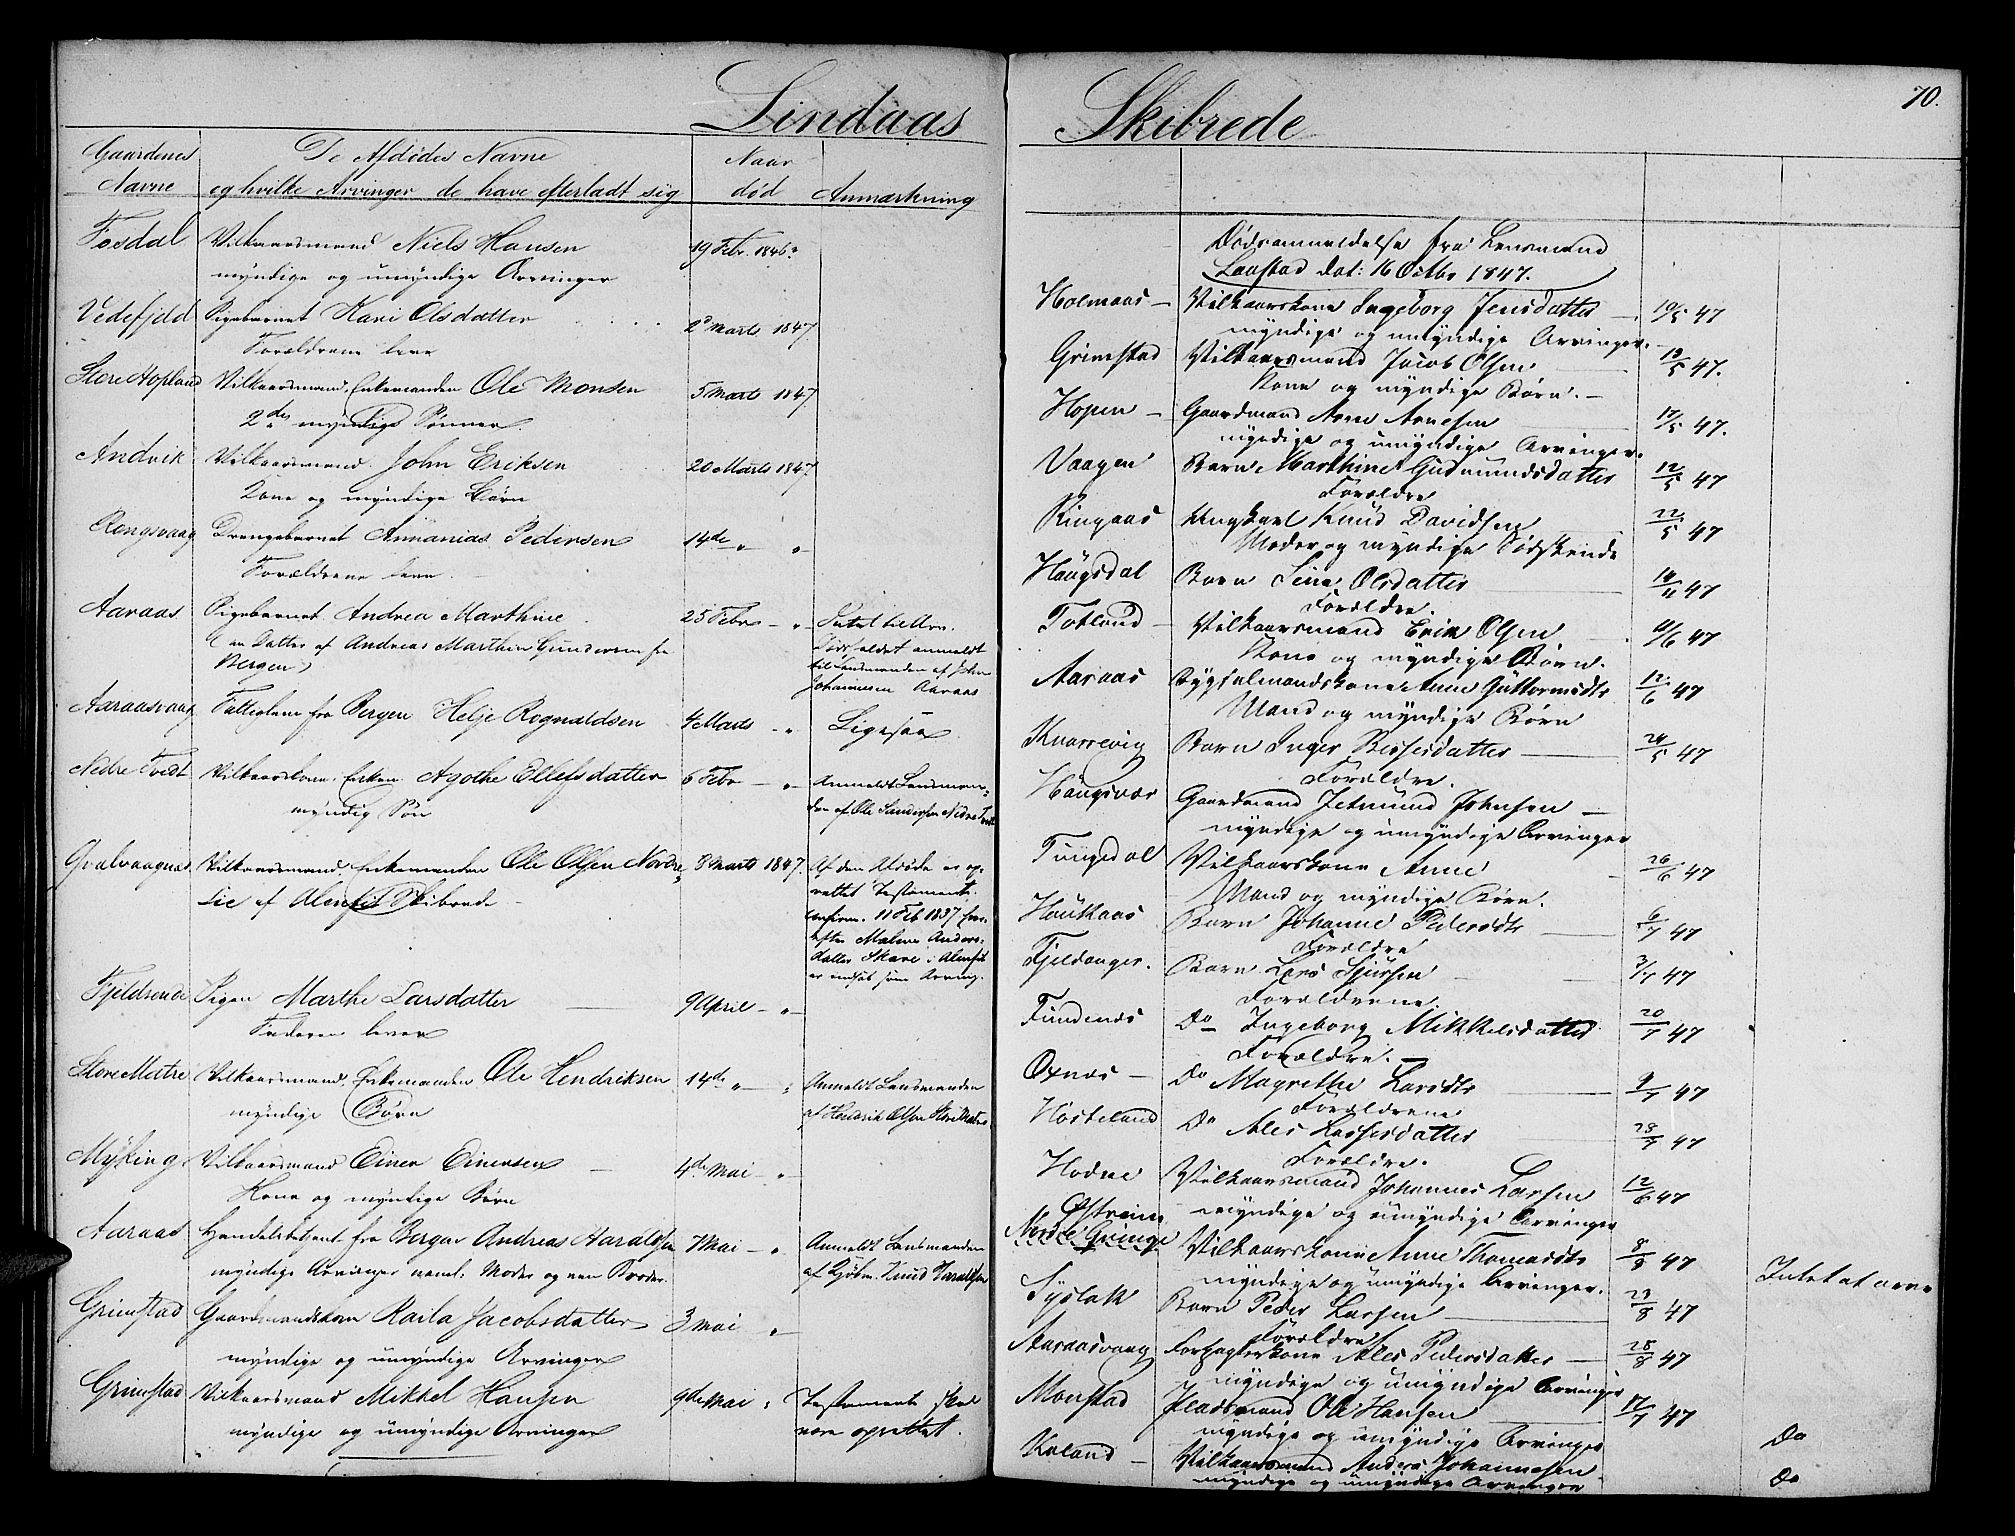 70.
Lindaas Skibrede
Gaardenes Navne
De Afdødes Navne og hvilke Arvinger de have efterladt sig
Naar død
Anmærkning
Fosdal Vilkaarsmand Niels Hansen 19 Febr. 1846
myndige og umyndige Arvinger
Vedefjeld Pigebarnet Kari Olsdatter 2d Marts 1847
Forældrene leve
Store Hopland Vilkaarsmand, Enkemanden Ole Monsen 5 Marts 1847
2de myndige Sønner.
Andvik Vilkaarsmand John Eriksen 20 Marts 1847
Kone og myndige Børn
Rongsvaag Drengebarnet Annanias Pedersen 14de " "
Forældrene leve.
Aaraas Pigebarnet Andrea Marthine 25 Febr - "
(en Datter af Andreas Marthin Gundersen fra
Bergen)
Dødsfaldet anmeldt
til Lensmanden af John
Johannesen Aaraas
Aaraasvaag fra Bergen Helje Rognaldsen 4 Marts - " Ligesaa
Nedre Tvedt Vilkaarskone, Enken Agothe Ellefsdatter 6 Febr - "
myndig Søn
Anmeldt Lensmanden
af Ole Sandersen Nedre Tvedt
Qvalvaagnæs Vilkaarsmand, Enkemanden Ole Olsen Nordre 8 Marts 1847
Lie af Alenfit Skibrede
Af den Afdøde er op-
rettet Testamente
confirm. 11 Feb 1837 hvor-
efter Malene Anders-
datter Skare i Alenfit
er indsat som Arving.
Fjeldsende Pigen Marthe Larsdatter 9 April - "
Faderen lever
Store Mettre Vilkaarsmand, Enkemanden Ole Hendriksen 14de " "
myndige Børn
Anmeldt Lensmanden
af Hendrik Olsen Store Mettre
Myking Vilkaarsmand Einer Einersen 4de Mai - "
Kone og myndige Børn
Aaraas Handelsbetjent fra Bergen Andreas Haraldsen 7 Mai - "
myndige Arvinger neml. Moder og een Broder.
Anmeldt Lensmanden
af Kjøbm. Knud Haraldsen
Grimstad Gaardmandskone Raila Jacobsdatter 3 Mai "
myndige og umyndige Arvinger
Grimstad Vilkaarsmand Mikkel Hansen 9de Mai "
myndige og umyndige Arvinger
Testamente skal
være oprettet.
Dødsanmeldelse fra Lensmand
Laastad dat: 16 Octbr 1847.
Holmaas - Vilkaarskone Ingeborg Jensdatter - 19/5 47
myndige og umyndige Arvinger.
Grimstad Vilkaarsmand Jacob Olsen 13/5 47.
Kone og myndige Børn. -
Hopen - Gaardmand Arne Arnesen 17/5 47.
myndige og umyndige Arvinger.
Vaagen Barn Marthine Gudmundsdatter 12/5 47
Forældre
Ringaas Ungkarl Knud Davidsen 22/5 47
Moder og myndige Sødskende
Haugsdal Barn Sina Olsdatter 47
Forældre.
Totland - Vilkaarsmand Erik Olsen 47
Kone og myndige Børn.
Aaraas Bygselmandskone Anne Guttormsdtr 12/6 47
Mand og myndige Børn
Knarrevig Barn Inger Bessesdatter 24/5 47
Forældre.
Haugsvær Gaardmand Jetmund Johnsen -
myndige og umyndige Arvinger
Tungedal Vilkaarskone Anne 26/6 47
Mand og myndige Børn.
Haukaas Barn Johanne Pedersdtr 6/7 47
Forældre
Fjeldanger. Barn Lars Sjursen 3/7 47
Forældrene.
Fundenæs Do Ingeborg Mikkelsdatter 20/7 47
Forældre. -
Oxnæs - Do Magrethe Larsdtr 9/7 47
Forældrene
Hosteland Do Ales Lassesdatter 28/7 47
Forældre.
Hodne Vilkaarsmand Johannes Larsen 12/6 47
myndige og umyndige Arvinger
Østreim
Nordre Qvinge Vilkaarskone Anne Thomasdtr 8/8 47
myndige og umyndige Arvinger.
Syslak Barn Peder Larsen 23/8 47 Intet at arve
Forældre
Aaraasvaag Forpagterkone Ales Pedersdatter - 28/8 47
myndige og umyndige Arvinger
Monstad Pladsmand Ole Hansen 17/7 47
myndige og umyndige Arvinger Do
Keland - Vilkaarsmand Anders Johannesen
myndige og umyndige Arvinger Do